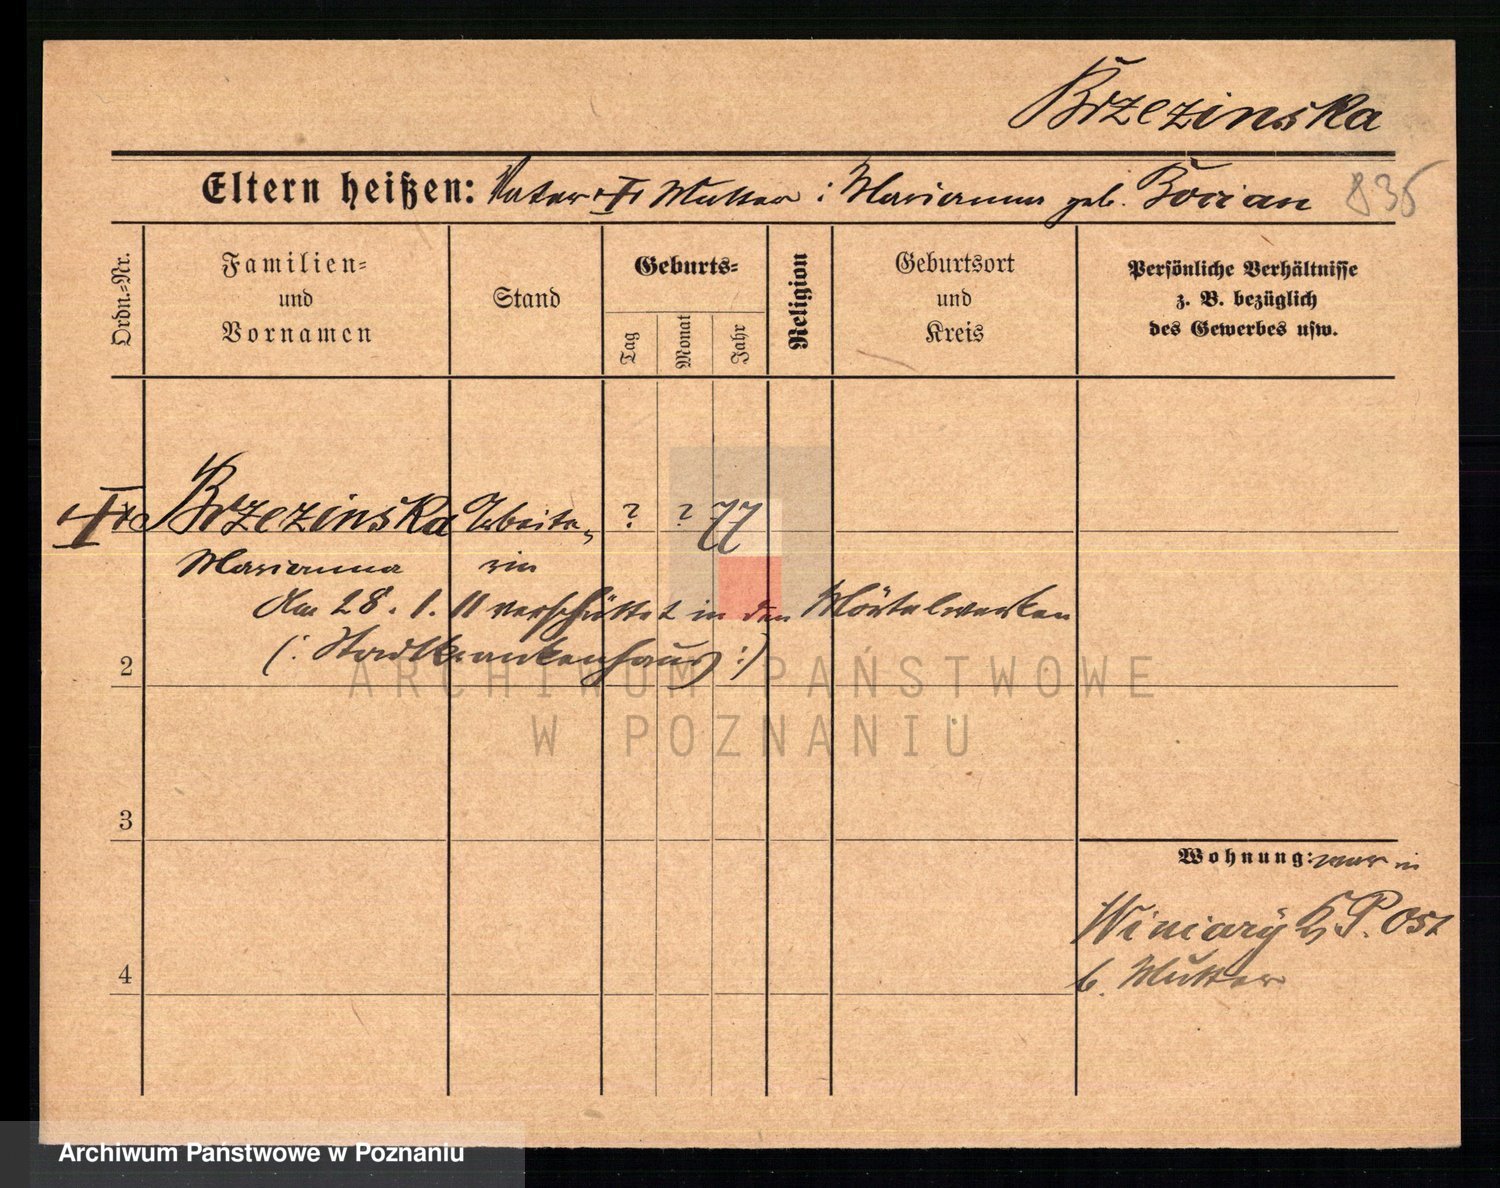 Brzezinska
Eltern heißen: Vater † Mutter: Marianna geb. Bocian
835
Ordn.-Nr.
Familien-
und
Vornamen
Stand
Geburts-
Tag
Monat
Jahr
Religion
Geburtsort
und
Kreis
Persönliche Verhältnisse
z. B. bezüglich
des Gewerbes usw.
Brzezinska Arbeite- ? ? 77
Marianna rin
Am 28. 1. 11 verschüttet in den Mörtelwerken
(: Stadtkrankenhaus :)
2
3
4
Wohnung: war in
Winiary P. Ost
b. Mutter
ARCHIWUM PAŃSTWOWE
W POZNANIU
Archiwum Państwowe w Poznaniu